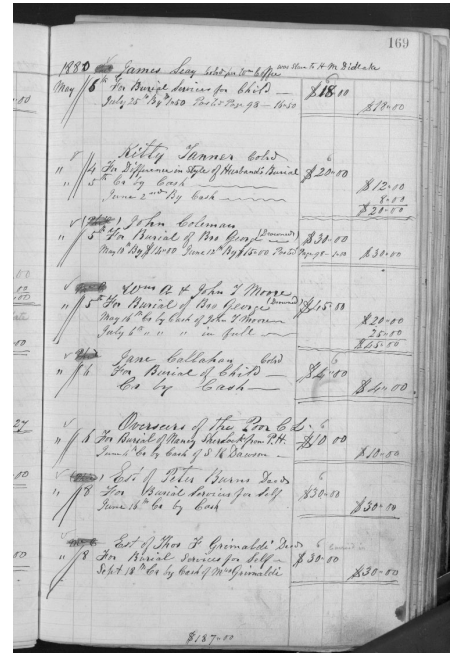 169
1880 James Seay Cold per Wm Coffee was Slave to H. M. Didlake
May 6th For Burial Services for Child — $18.00
July 25 By $1.50 Posted Page 98 — 16.50 $18-00
Kitty Tanner Cold
" 4 For Difference in Style of Husband's Burial $20-00
" 5th Cr by Cash $12-00
June 2nd By Cash 8-00
$20-00
John Coleman
" 5th For Burial of Bro George (Drowned) $30-00
May 10th By $14-00 June 12th By $15-00 Posted Page 98 - 1-00 $30-00
Wm A & John T Moore
" 5th For Burial of Bro George (Drowned) $45-00
May 16th Cr by Cash of John T Moore $20-00
July 6th " " " in full 25-00
$45-00
Jane Callahan Cold
" 6 For Burial of Child — $4-00
Cr by Cash — $4-00
Overseers of the Poor C L
" 6 For Burial of Nancy from P.H. $10 00
June 4th Cr by Cash of S. R. Dawson — $10-00
Est of Peter Burns Decd
" 8 For Burial Services for Self $30-00
June 16th Cr by Cash $30-00
Est of Thos F Grimaldi Decd
" 8 For Burial Services for Self — $30-00
Sept 18th Cr by Cash of Mrs Grimaldi $30-00
$187-00